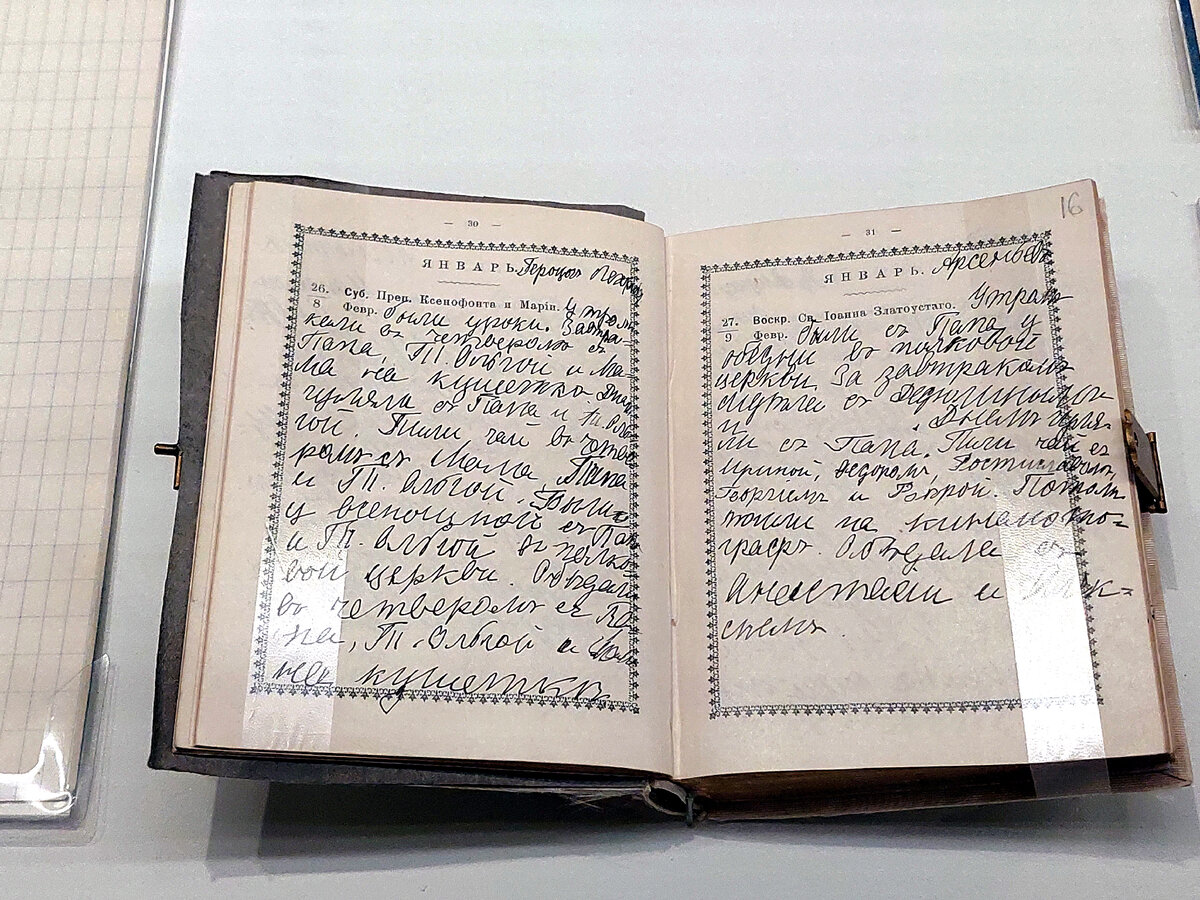 — 30 —
ЯНВАРЬ.
26. Суб. Преп. Ксенофонта и Маріи. Утромъ
8 Февр. были уроки. Завтра-
кали въ четверомъ съ
Папа, Т. Ольгой и Ма-
ма на кушеткѣ. Днемъ
гуляли съ Папа и Т. Оль-
гой. Пили чай въ четве
ромъ съ Мама, Папа
и Т. Ольгой. Были
у всенощной съ Папа
и Т. Ольгой въ полко-
вой церкви. Обѣдали
въ четверомъ съ Па-
па, Т. Ольгой и Мама
на кушеткѣ
16
— 31 —
ЯНВАРЬ. Арсеньевъ
27. Воскр. Св. Іоанна Златоустаго. Утромъ
9 Февр. были съ Папа у
обѣдни въ полковой
церкви. За завтракомъ
съ
и Днемъ гуля-
ли съ Папа. Пили чай съ
Ириной, Ѳедоромъ, Ростиславомъ,
Георгіемъ и Потомъ
пошли на кинематог-
графъ. Обѣдали съ
Анастасіей и Алек-
сѣемъ.